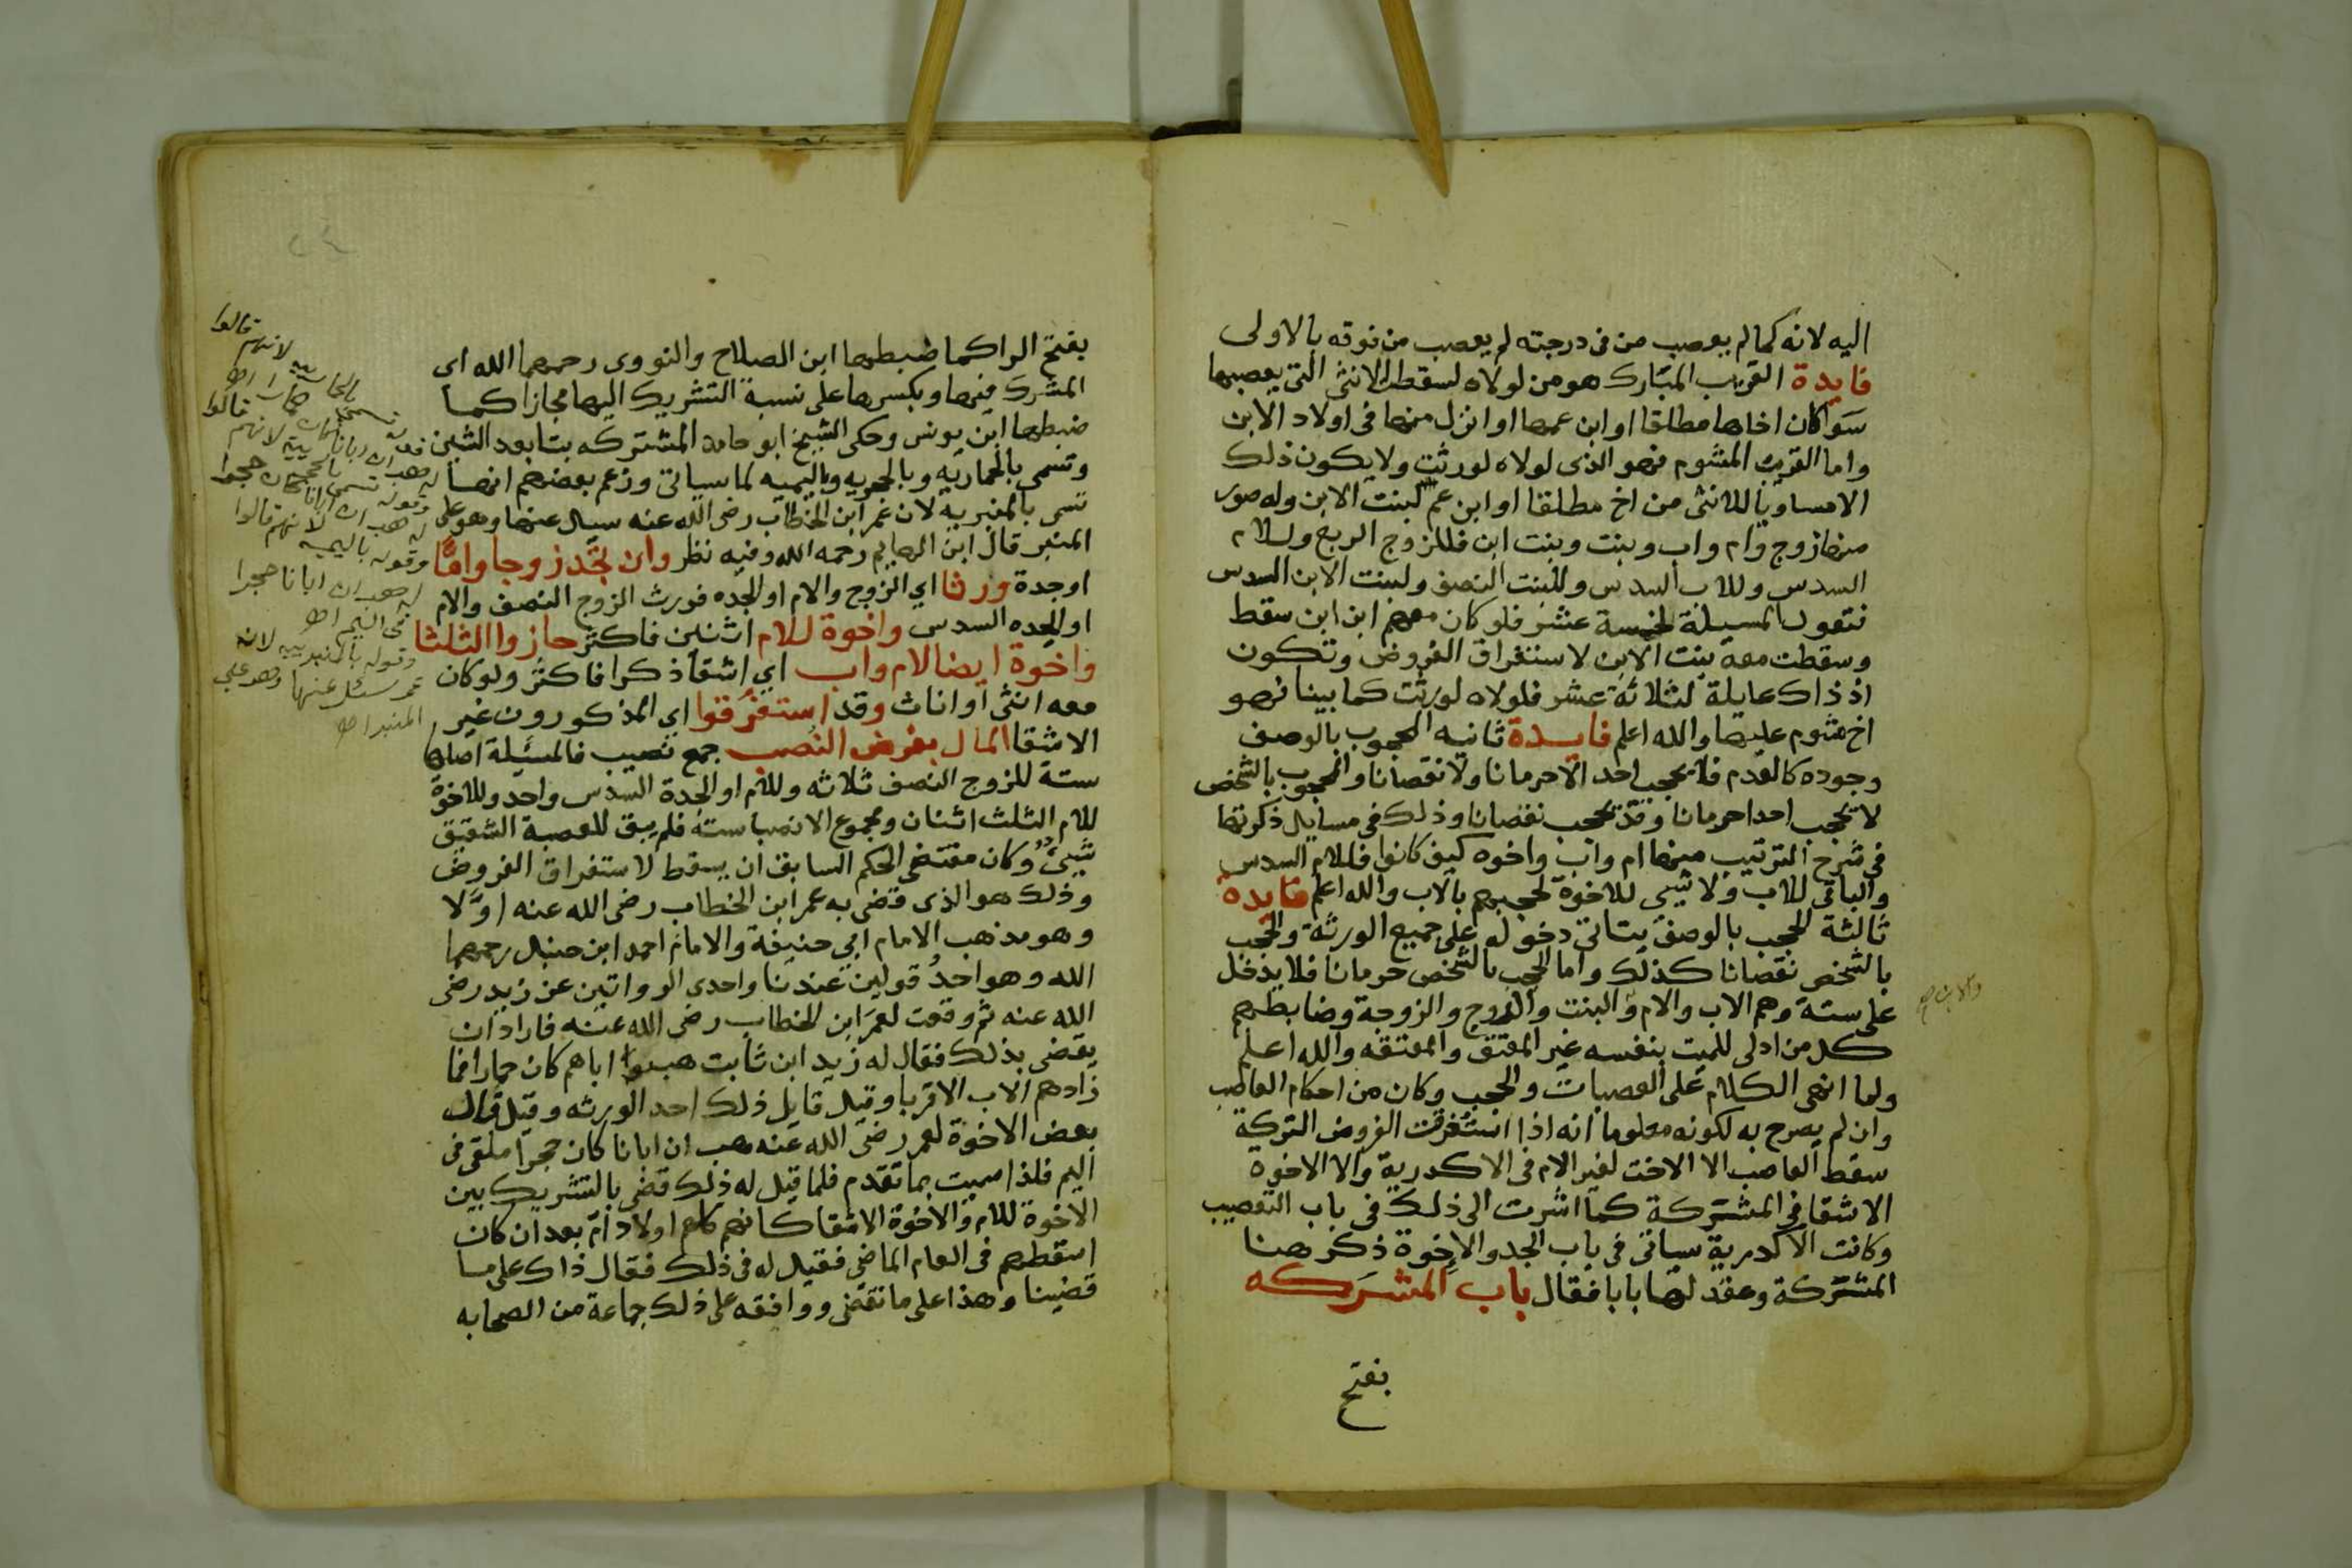 اليه لانه كما لم يعصب من فى درجته لم يعصب من فوقه بالاولى
فايدة القريب المبارك هو من لولاه لسقطت الانثى التى يعصبها
سوا كان اخاها مطلقا او ابن عمها او انزل منها فى اولاد الابن
واما القريب المشوم فهو الذى لولاه لورثت ولا يكون ذلك
الا مساويا للانثى من اخ مطلقا او ابن عم لبنت الابن وله صور
منها زوج وام واب وبنت وبنت ابن فللزوج الربع وللام
السدس وللاب السدس وللبنت النصف ولبنت الابن السدس
فتعول المسيلة لخمسة عشر فلو كان معهم ابن ابن سقط
وسقطت معه بنت الابن لاستغراق الفروض وتكون
اذ ذاك عايلة لثلاثة عشر فلولاه لورثت كما بينا فهو
اخ مشوم عليها والله اعلم فايدة ثانيه المحجوب بالوصف
وجوده كالعدم فلا يحجب احدا لا حرمانا ولا نقصانا والمحجوب بالشخص
لا يحجب احدا حرمانا وقد يحجب نقصانا وذلك فى مسايل ذكرتها
فى شرح الترتيب منها ام واب واخوه كيف كانوا فللام السدس
والباقى للاب ولا شيى للاخوة لحجبهم بالاب والله اعلم فايدة
ثالثة الحجب بالوصف يتاتى دخوله على جميع الورثة والحجب
بالشخص نقصانا كذلك واما الحجب بالشخص حرمانا فلا يدخل
على ستة وهم الاب والام والبنت والزوج والزوجة وضابطهم
والابن صح
كل من ادلى للميت بنفسه غير المعتق والمعتقه والله اعلم
ولما انهى الكلام على العصبات والحجب وكان من احكام العاصب
وان لم يصرح به لكونه معلوما انه اذا استغرقت الفروض التركة
سقط العاصب الا الاخت لغير الام فى الاكدرية والا الاخوة
الاشقا فى المشتركة كما اشرت الى ذلك فى باب التعصيب
وكانت الاكدرية سياتى فى باب الجد والاخوة ذكر هنا
المشتركة وعقد لها بابا فقال باب المشركه
بفتح
بفتح الرا كما ضبطها ابن الصلاح والنووى رحمهما الله اى
المشرك فيها وبكسرها على نسبة التشريك اليها مجازا كما
ضبطها ابن يونس وحكى الشيخ ابو حامد المشتركه بتا بعد الشين
وتسمى بالحماريه وبالحجريه وباليميه لما سياتى وزعم بعضهم انها
تسمى بالمنبريه لان عمر ابن الخطاب رضى الله عنه سيل عنها وهو على
المنبر قال ابن الهايم رحمه الله وفيه نظر وان تجد زوجا واما
او جدة ورثا اي الزوج والام او الجده فورث الزوج النصف والام
او الجده السدس واخوة للام اثنين فاكثر حازوا الثلثا
واخوة ايضا لام واب اي اشقا ذكرا فاكثر ولو كان
معه انثى او اناث وقد استغرقوا اي المذكورون غير
الاشقا المال بفرض النصب جمع نصيب فالمسئلة اصلها
ستة للزوج النصف ثلاثه وللام او الجدة السدس واحد وللاخوة
للام الثلث اثنان ومجموع الانصبا ستة فلم يبق للعصبة الشقيق
شيئ وكان مقتضى الحكم السابق ان يسقط لاستغراق الفروض
وذلك هو الذى قضى به عمر ابن الخطاب رضى الله عنه اولا
وهو مذهب الامام ابي حنيفة والامام احمد ابن حنبل رحمهما
الله وهو احد قولين عندنا واحدى الرواتين عن زيد رضى
الله عنه ثم وقعت لعمر ابن الخطاب رضى الله عنه فاراد ان
يقضى بذلك فقال له زيد ابن ثابت هبوا اباهم كان حمارا فما
زادهم الاب الا قربا وقيل قايل ذلك احد الورثه وقيل قال
بعض الاخوة لعمر رضى الله عنه هب ان ابانا كان حجرا ملقى فى
اليم فلذا سميت بما تقدم فلما قيل له ذلك قضى بالتشريك بين
الاخوة للام والاخوة الاشقا كانهم كلهم اولاد ام بعد ان كان
اسقطهم فى العام الماضى فقيل له فى ذلك فقال ذاك على ما
قضينا وهذا على ما نقضى ووافقه على ذلك جماعة من الصحابه
لانهم قالوا
وقوله باليميه لانهم قالوا
له هب ان ابانا حجرا
فى اليم اه
وقوله بالمنبرييه لانه
عمر سئل عنها وهو على
المنبر اه